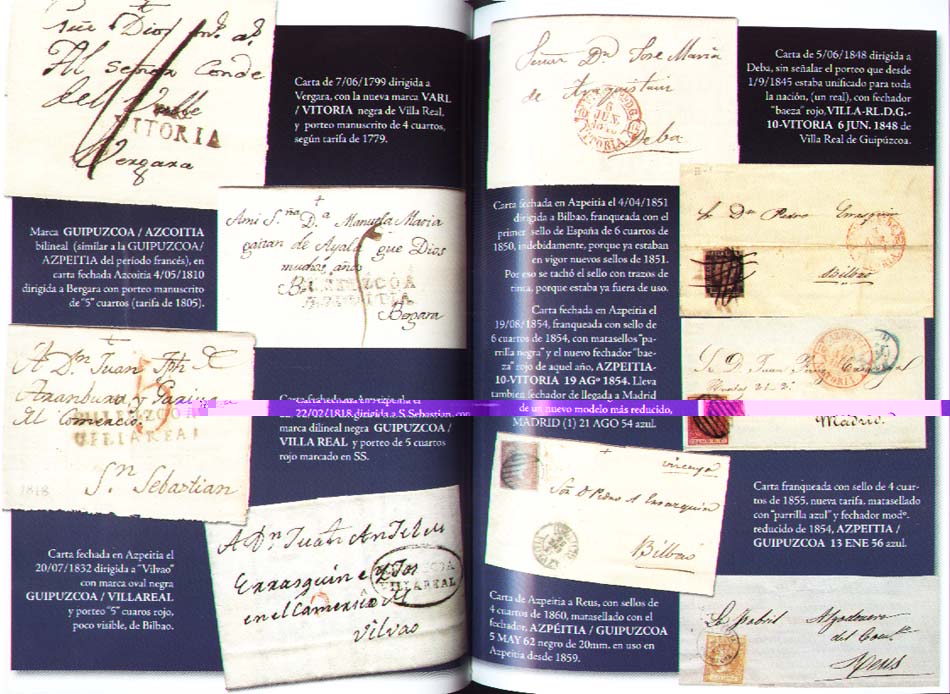 que Dios
Al Señor Conde
del Valle
VITORIA
Vergara
Carta de 7/06/1799 dirigida a
Vergara, con la nueva marca VARL
/ VITORIA negra de Villa Real,
y porteo manuscrito de 4 cuartos,
según tarifa de 1779.
Marca GUIPUZCOA / AZCOITIA
bilineal (similar a la GUIPUZCOA/
AZPEITIA del período francés), en
carta fechada Azcoitia 4/05/1810
dirigida a Bergara con porteo manuscrito
de "5" cuartos (tarifa de 1805).
Manuela Maria
gaitan de Ayala que Dios
muchos años
Bergara
A Dn Juan
Aranburu y
Al Comercio
VILLAREAL
Sn Sebastian
1818
22/02/1818 dirigida a S.Sebastian, con
marca dilineal negra GUIPUZCOA /
VILLA REAL y porteo de 5 cuartos
rojo marcado en SS.
Carta fechada en Azpeitia el
20/07/1832 dirigida a "Vilvao"
con marca oval negra
GUIPUZCOA / VILLAREAL
y porteo "5" cuaros rojo,
poco visible, de Bilbao.
A Dn Juan Anselmo
Errasquin e yjos
en el Comercio de
VILLAREAL
Vilvao
Señor Dn Jose Maria
de Aragustain
6
JUN
VITORIA
Deba
Carta de 5/06/1848 dirigida a
Deba, sin señalar el porteo que desde
1/9/1845 estaba unificado para toda
la nación, (un real), con fechador
"baeza" rojo, VILLA-RL.D.G.-
10-VITORIA 6 JUN. 1848 de
Villa Real de Guipúzcoa.
Carta fechada en Azpeitia el 4/04/1851
dirigida a Bilbao, franqueada con el
primer sello de España de 6 cuartos de
1850, indebidamente, porque ya estaban
en vigor nuevos sellos de 1851.
Por eso se tachó el sello con trazos de
tinta, porque estaba ya fuera de uso.
Pedro Errasquin
Bilbao
Carta fechada en Azpeitia el
19/08/1854, franqueada con sello de
6 cuartos de 1854, con matasellos "pa-
rrilla negra" y el nuevo fechador "bae-
za" rojo de aquel año, AZPEITIA-
10-VITORIA 19 AGº 1854. Lleva
también fechador de llegada a Madrid
de un nuevo modelo más reducido,
MADRID (1) 21 AGO 54 azul.
AZPEITIA
D. Juan
Madrid.
Carta franqueada con sello de 4 cuar-
tos de 1855, nueva tarifa, matasellado
con "parrilla azul" y fechador modº.
reducido de 1854, AZPEITIA /
GUIPUZCOA 13 ENE 56 azul.
Bilbao
Carta de Azpeitia a Reus, con sellos de
4 cuartos de 1860, matasellado con el
fechador, AZPÉITIA / GUIPUZCOA
5 MAY 62 negro de 20mm. en uso en
Azpeitia desde 1859.
Algodonero
Reus